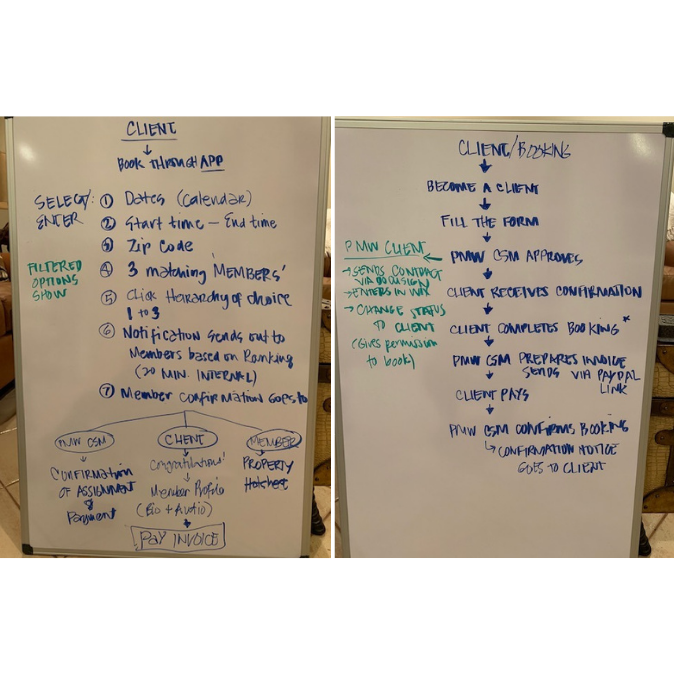 CLIENT
↓
BOOK THROUGH APP
SELECT/
ENTER
① Dates (Calendar)
② Start time — End time
③ Zip Code
FILTERED
OPTIONS
SHOW
④ 3 matching 'MEMBERS'
⑤ Click Hierarchy of choice
1 to 3
⑥ Notification sends out to
Members based on Ranking
(20 MIN. INTERNAL)
⑦ Member confirmation goes to
PMW CSM
↓
CONFIRMATION
OF ASSIGNMENT
&
Payment
CLIENT
↓
Congratulations!
↓
Member Profile
(Bio + Audio)
↓
PAY INVOICE
MEMBER
↓
PROPERTY
CLIENT/BOOKING
↓
BECOME A CLIENT
↓
FILL THE FORM
↓
PMW CSM APPROVES
↓
CLIENT RECEIVES CONFIRMATION
↓
CLIENT COMPLETES BOOKING *
↓
PMW CSM PREPARES INVOICE
SENDS VIA PAYPAL
LINK
↓
CLIENT PAYS
↓
PMW CSM CONFIRMS BOOKING
↳ CONFIRMATION NOTICE
GOES TO CLIENT
PMW CLIENT ←
→ SENDS CONTRACT
VIA DOCUSIGN
→ ENTERS IN WIX
→ CHANGE STATUS
TO CLIENT
(Gives permission
to book)